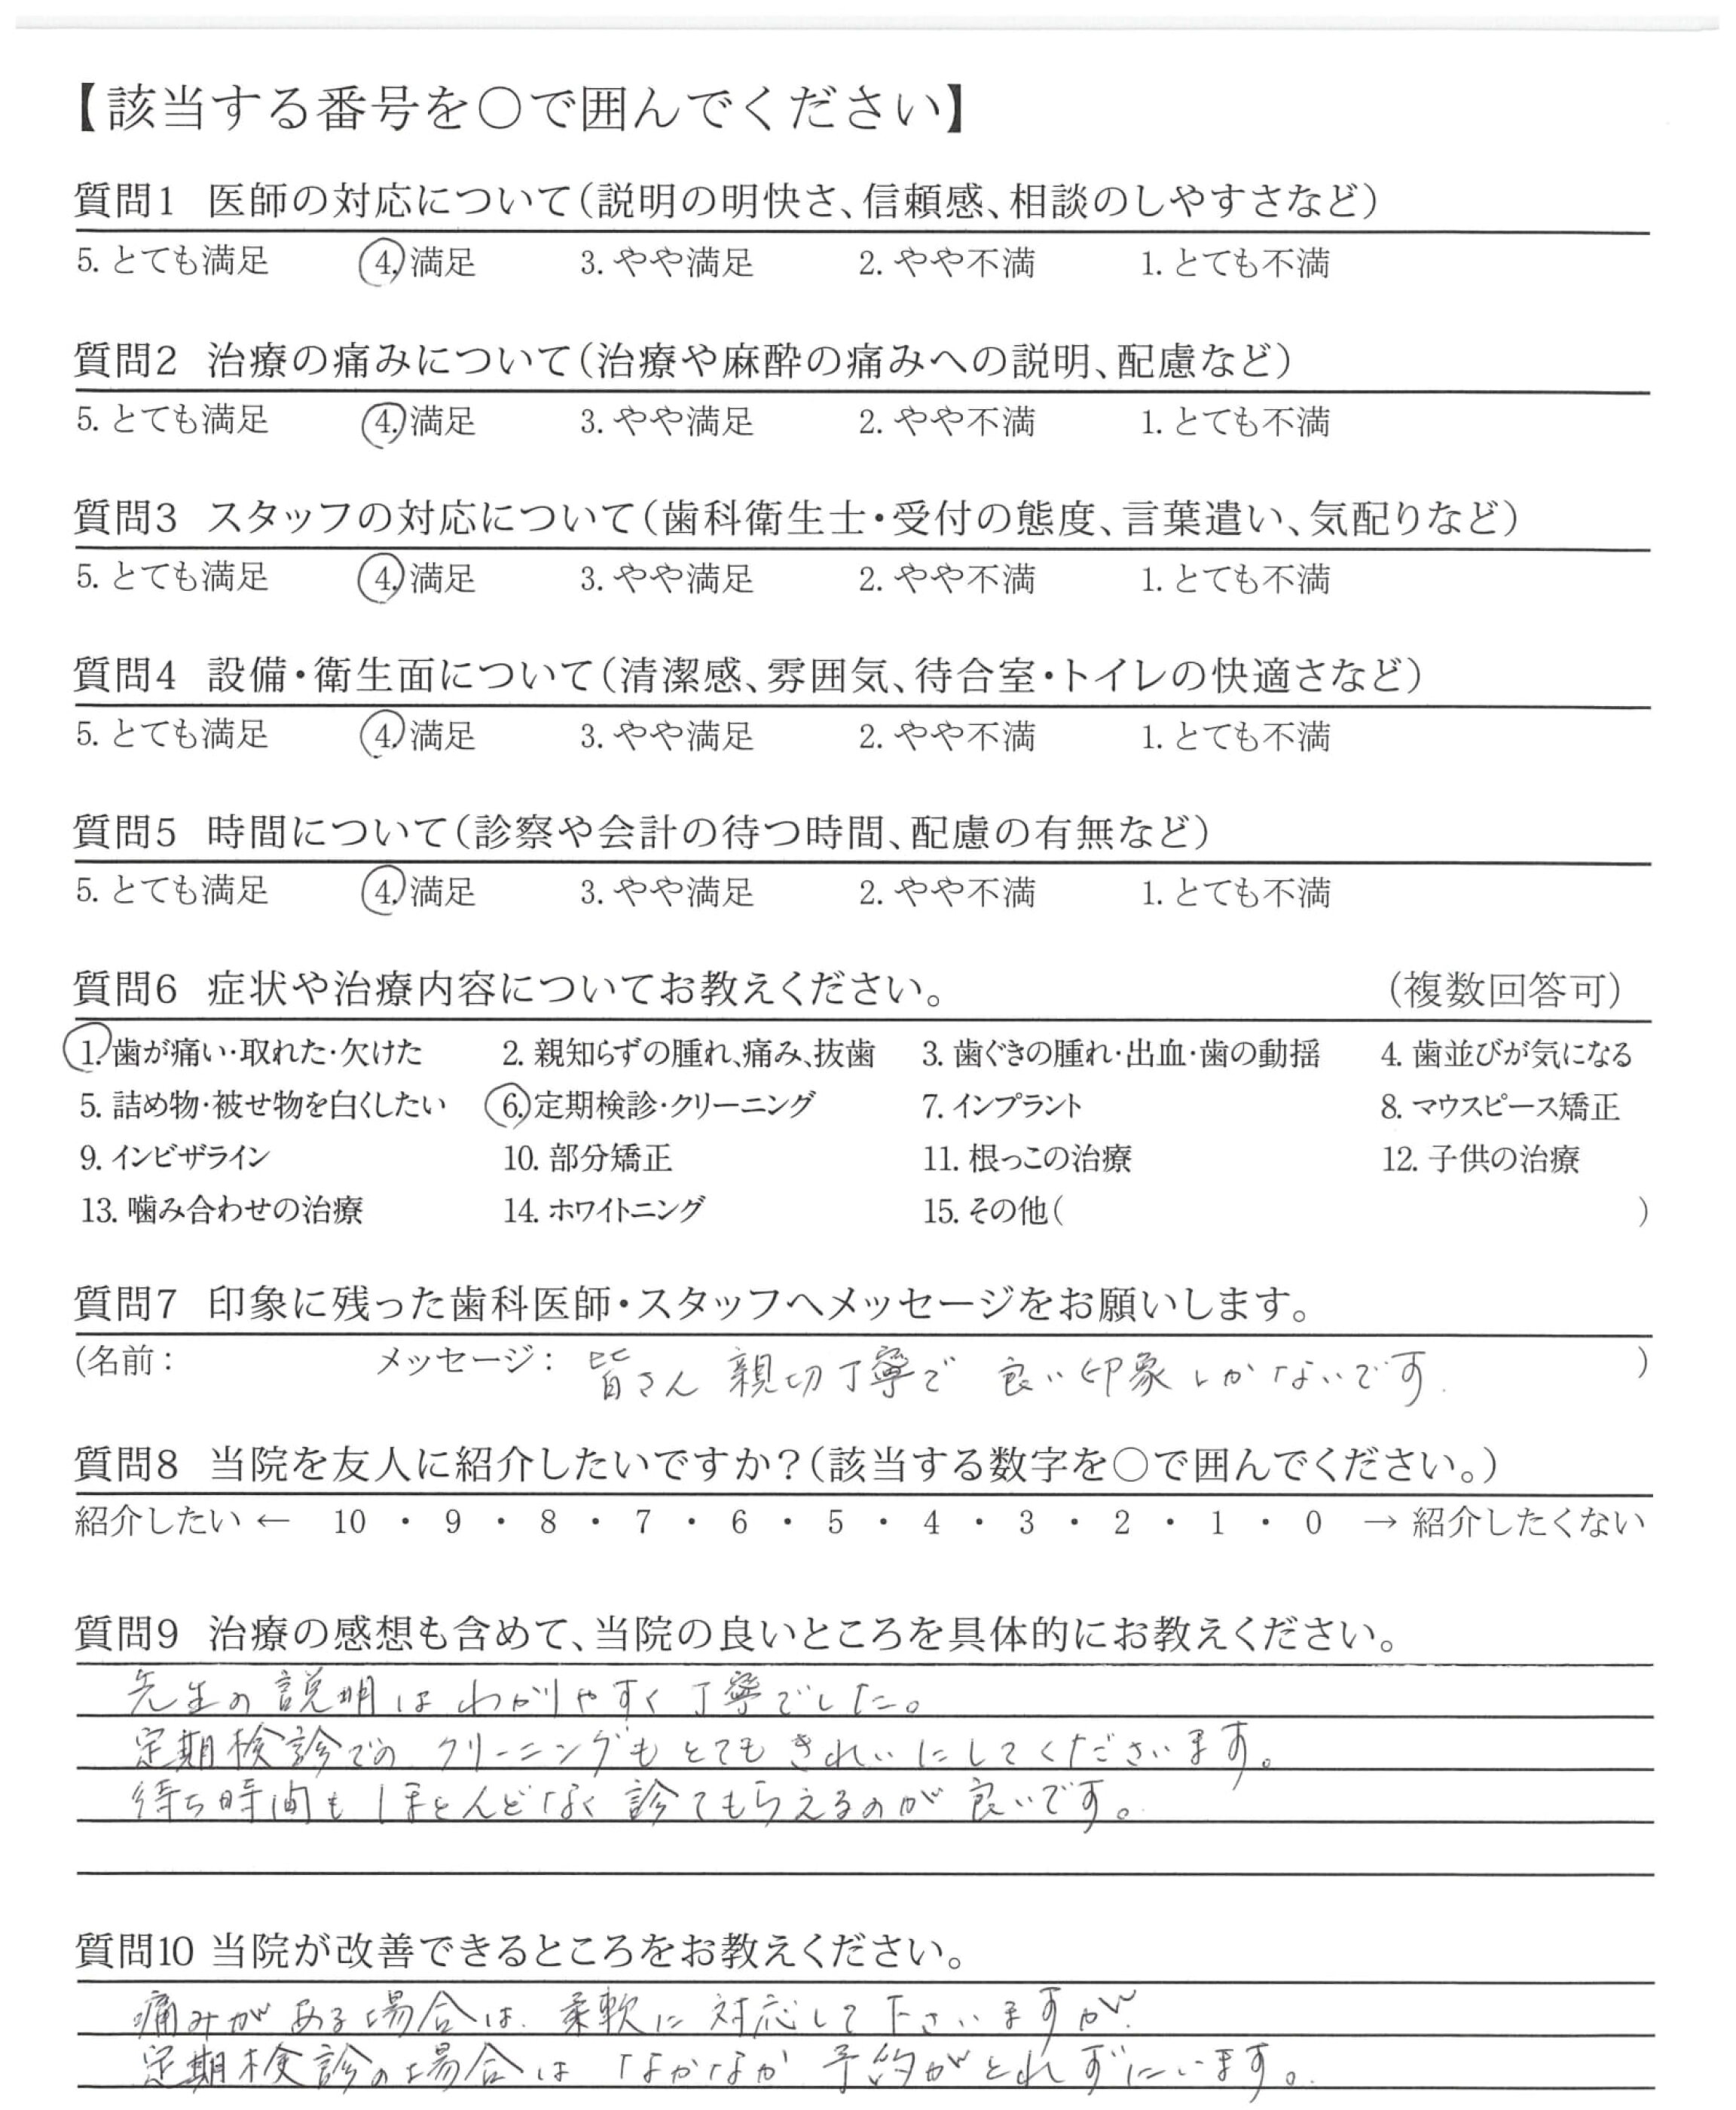 【該当する番号を○で囲んでください】
質問1 医師の対応について(説明の明快さ、信頼感、相談のしやすさなど)
5. とても満足 4. 満足 3. やや満足 2. やや不満 1. とても不満
質問2 治療の痛みについて(治療や麻酔の痛みへの説明、配慮など)
5. とても満足 4. 満足 3. やや満足 2. やや不満 1. とても不満
質問3 スタッフの対応について(歯科衛生士・受付の態度、言葉遣い、気配りなど)
5. とても満足 4. 満足 3. やや満足 2. やや不満 1. とても不満
質問4 設備・衛生面について(清潔感、雰囲気、待合室・トイレの快適さなど)
5. とても満足 4. 満足 3. やや満足 2. やや不満 1. とても不満
質問5 時間について(診察や会計の待つ時間、配慮の有無など)
5. とても満足 4. 満足 3. やや満足 2. やや不満 1. とても不満
質問6 症状や治療内容についてお教えください。 (複数回答可)
1. 歯が痛い・取れた・欠けた 2. 親知らずの腫れ、痛み、抜歯 3. 歯ぐきの腫れ・出血・歯の動揺 4. 歯並びが気になる
5. 詰め物・被せ物を白くしたい 6. 定期検診・クリーニング 7. インプラント 8. マウスピース矯正
9. インビザライン 10. 部分矯正 11. 根っこの治療 12. 子供の治療
13. 噛み合わせの治療 14. ホワイトニング 15. その他( )
質問7 印象に残った歯科医師・スタッフへメッセージをお願いします。
(名前: メッセージ: 皆さん 親切丁寧で 良い印象しかないです. )
質問8 当院を友人に紹介したいですか?(該当する数字を○で囲んでください。)
紹介したい ← 10 ・ 9 ・ 8 ・ 7 ・ 6 ・ 5 ・ 4 ・ 3 ・ 2 ・ 1 ・ 0 → 紹介したくない
質問9 治療の感想も含めて、当院の良いところを具体的にお教えください。
先生の説明はわかりやすく丁寧でした。
定期検診でのクリーニングもとてもきれいにしてくださいます。
待ち時間もほとんどなく診てもらえるのが良いです。
質問10 当院が改善できるところをお教えください。
痛みがある場合は、柔軟に対応して下さいますが、
定期検診の場合はなかなか予約がとれずにいます。